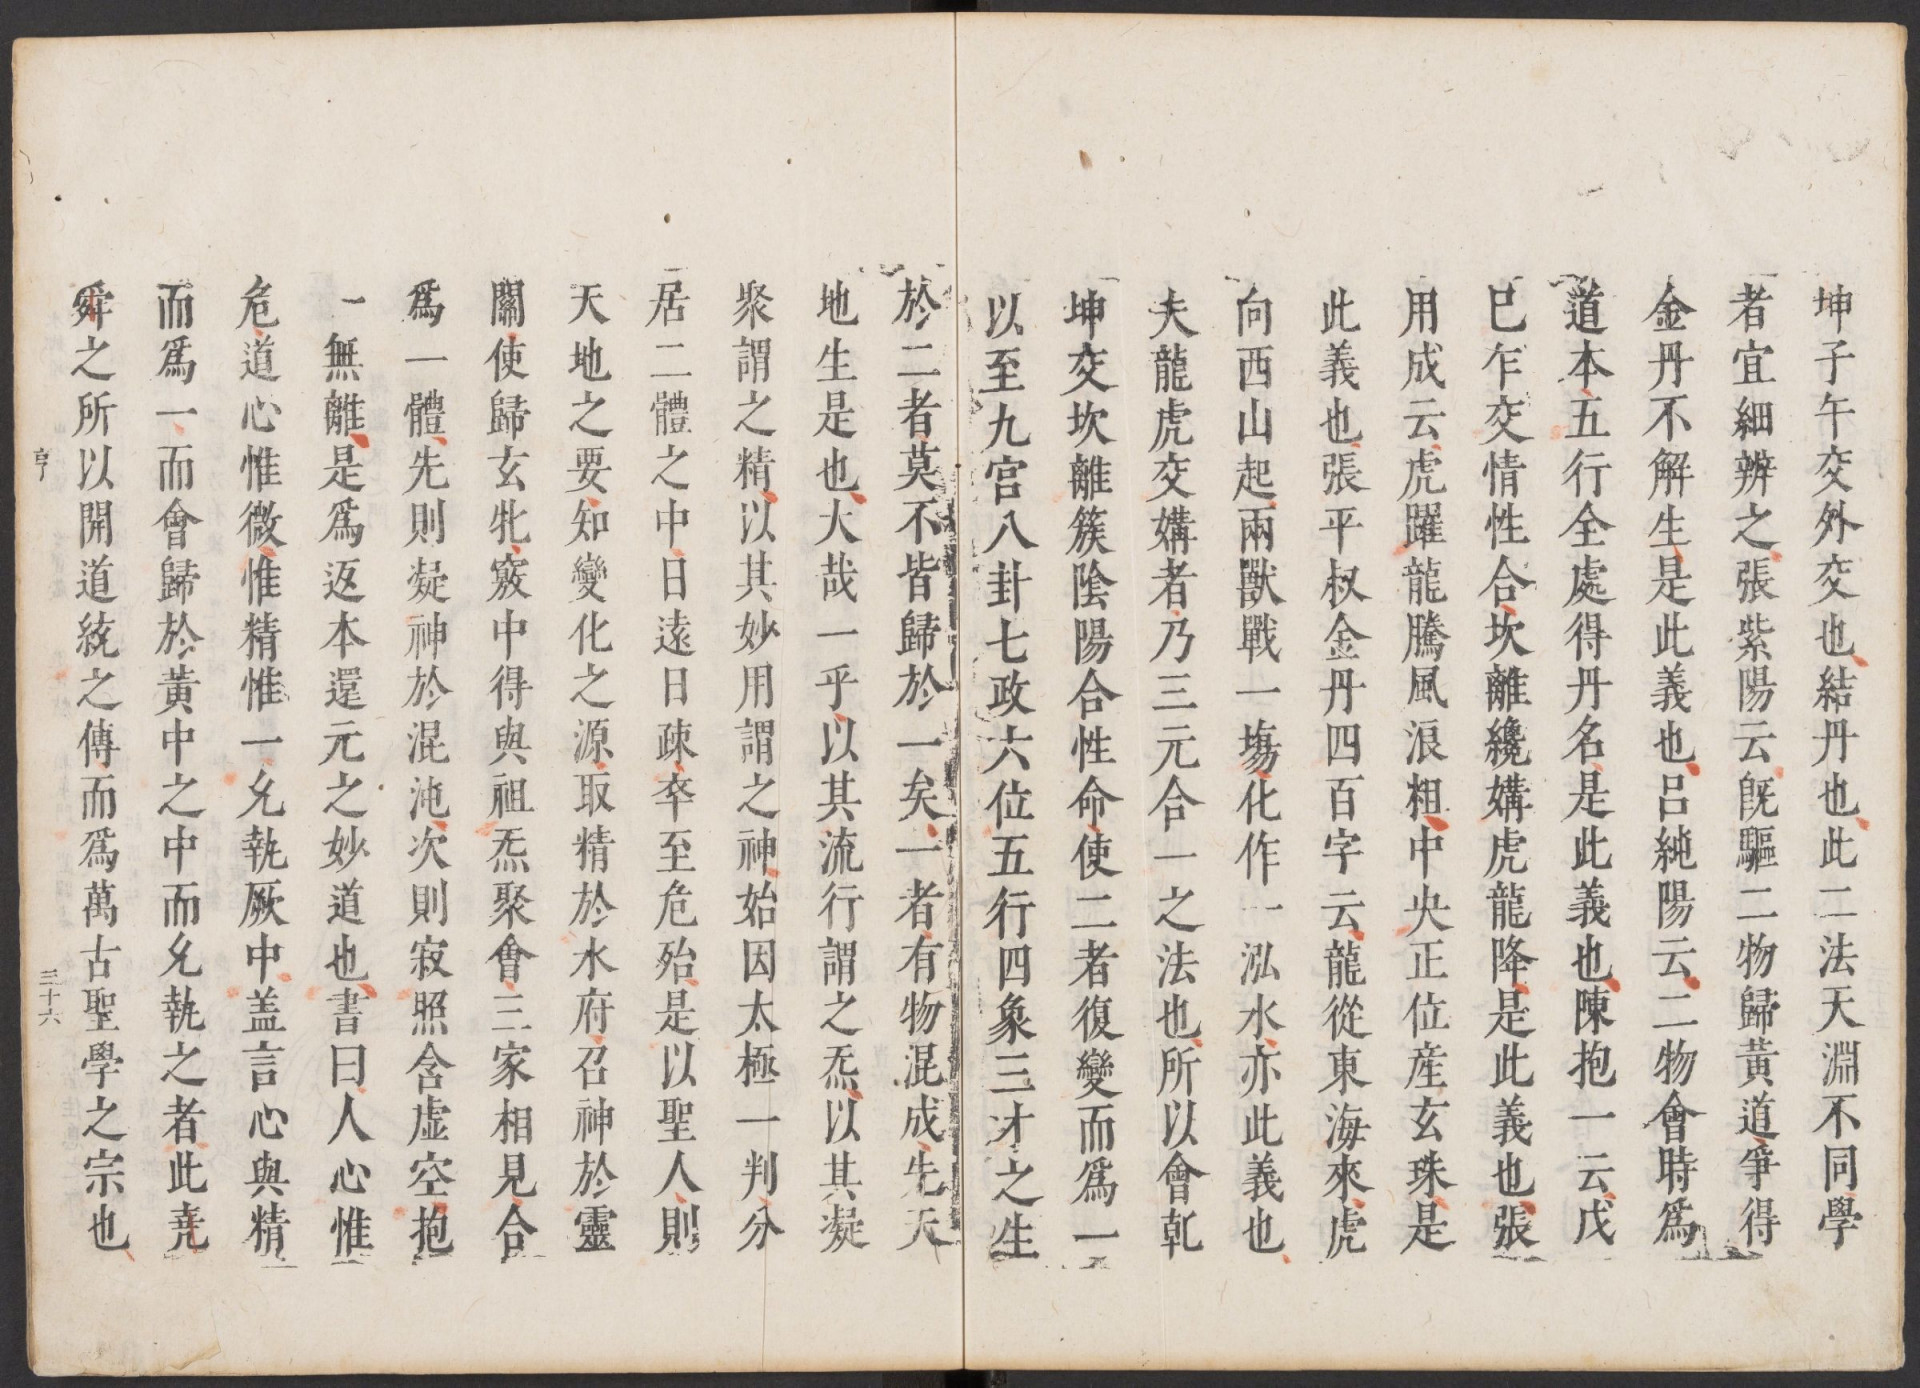 坤子午交外交也結丹也此二法天淵不同學
者宜細辨之張紫陽云旣驅二物歸黃道爭得
金丹不解生是此義也呂純陽云二物會時爲
道本五行全處得丹名是此義也陳抱一云戊
巳乍交情性合坎離纔媾虎龍降是此義也張
用成云虎躍龍騰風浪粗中央正位産玄珠是
此義也張平叔金丹四百字云龍從東海來虎
向西山起兩獸戰一塲化作一泓水亦此義也
夫龍虎交媾者乃三元合一之法也所以會乹
坤交坎離簇陰陽合性命使二者復變而爲一
以至九宮八卦七政六位五行四象三才之生
於二者莫不皆歸於一矣一者有物混成先天
地生是也大哉一乎以其流行謂之炁以其凝
聚謂之精以其妙用謂之神始因太極一判分
居二體之中日遠日疎卒至危殆是以聖人則
天地之要知變化之源取精於水府召神於靈
關使歸玄牝竅中得與祖炁聚會三家相見合
爲一體先則凝神於混沌次則寂照含虛空抱
一無離是爲返本還元之妙道也書曰人心惟
危道心惟微惟精惟一允執厥中盖言心與精
而爲一而會歸於黃中之中而允執之者此堯
舜之所以開道統之傳而爲萬古聖學之宗也
亨
三十六